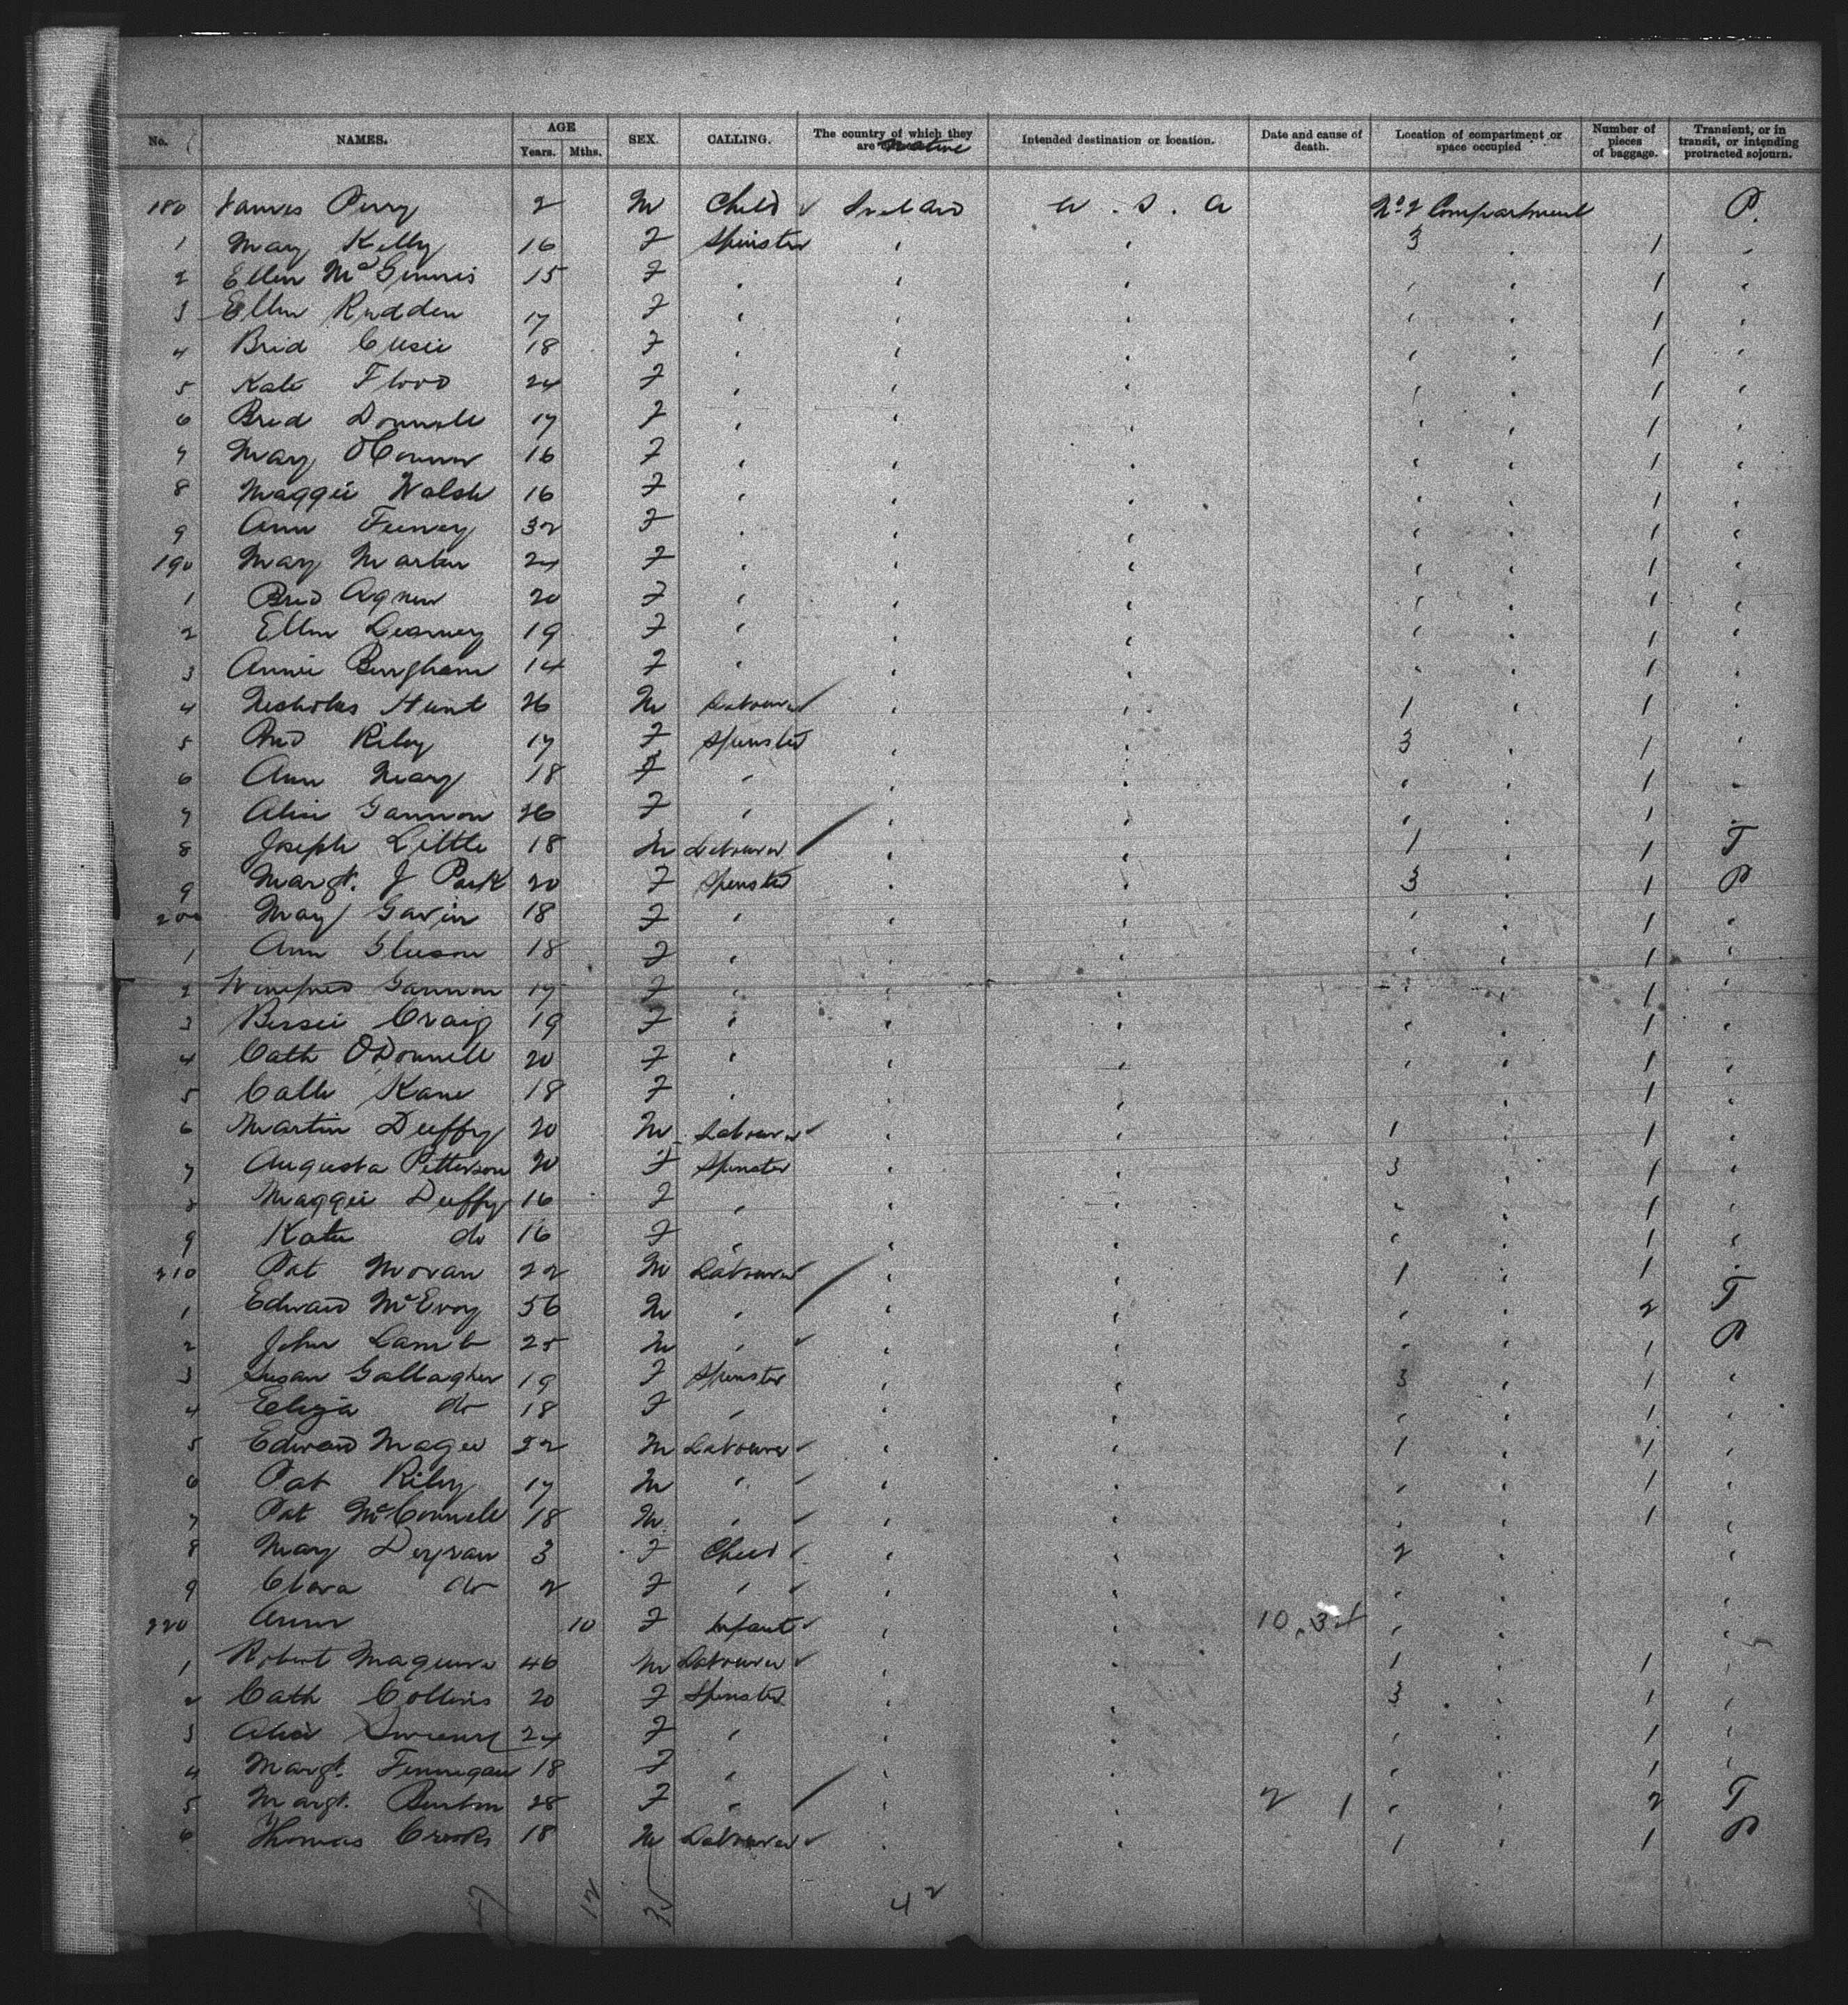 No. NAMES. AGE Years. Mths. SEX. CALLING. The country of which they are native Intended destination or location. Date and cause of death. Location of compartment or space occupied Number of pieces of baggage. Transient, or in transit, or intending protracted sojourn.
180 James Perry 2 M Child ✓ Ireland U.S.A No 2 Compartment P.
1 Mary Kelly 16 F Spinster " " 3 " 1 "
2 Ellen McGinnis 15 F " " " " " 1 "
3 Ellen Rudden 17 F " " " " " 1 "
4 Brid Cusic 18 F " " " " " 1 "
5 Kate Flood 24 F " " " " " 1 "
6 Brid Donnell 17 F " " " " " 1 "
7 Mary OConnor 16 F " " " " " 1 "
8 Maggie Walsh 16 F " " " " " 1 "
9 Ann Feeney 32 F " " " " " 1 "
190 Mary Martin 24 F " " " " " 1 "
1 Brid Agnew 20 F " " " " " 1 "
2 Ellen Kearney 19 F " " " " " 1 "
3 Annie Bingham 14 F " " " " " 1 "
4 Nicholas Hunt 26 M Labourer ✓ " " 1 " 1 "
5 Brid Riley 17 F Spinster " " 3 " 1 "
6 Ann Neary 18 F " " " " " 1 "
7 Alice Gannon 26 F " " " " " 1 "
8 Joseph Little 18 M Labourer / " " 1 " 1 T
9 Margt. J Park 20 F Spinster " " 3 " 1 P
200 Mary Gavin 18 F " " " " " 1 "
1 Ann Gleeson 18 F " " " " " 1 "
2 Winefred Gannon 17 F " " " " " 1 "
3 Bessie Craig 19 F " " " " " 1 "
4 Cath ODonnell 20 F " " " " " 1 "
5 Cath Kane 18 F " " " " 1 "
6 Martin Duffy 20 M Labourer ✓ " " 1 " 1 "
7 Augusta Petterson 20 F Spinster " " 3 " 1 "
8 Maggie Duffy 16 F " " " " " 1 "
9 Kate do 16 F " " " " " 1 "
210 Pat Moran 22 M Labourer ✓ " " 1 " 1 "
1 Edward McEvoy 56 M " / " " " " 2 T
2 John Lamb 25 M " ✓ " " " " 1 P
3 Susan Gallagher 19 F Spinster " " 3 " 1 "
4 Eliza do 18 F " " " " " 1 "
5 Edward Magee 22 M Labourer ✓ " " 1 " 1 "
6 Pat Riley 17 M " ✓ " " " " 1 "
7 Pat McConnell 18 M " ✓ " " " " 1 "
8 Mary 3 F Child ✓ " " 2 " "
9 Clara do 2 F " ✓ " " " " "
220 Annie 10 F Infant ✓ " " 10 " " "
1 Robert Maguire 46 M Labourer ✓ " " 1 " 1 "
2 Cath Collins 20 F Spinster " " 3 " 1 "
3 Alice Sweeney 24 F " " " " " 1 "
4 Margt. Finnegan 18 F " " " " " 1 "
5 Margt. Burton 28 F " / " " 2 1 " " 2 T
6 Thomas Crooks 18 M Labourer ✓ " " 1 " 1 P
12 35 42